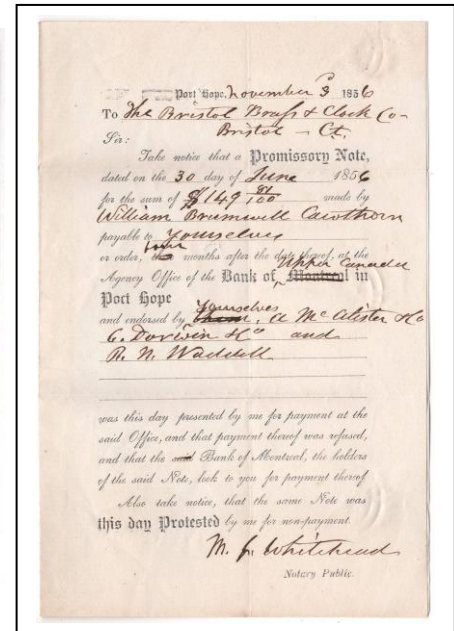 Port Hope, November 3 1856
To The Bristol Brass & Clock Co
Bristol - Ct.
Sir:
Take notice that a Promissory Note,
dated on the 30 day of June 1856
for the sum of $149 81/100 made by
William Brumwell Cawthorn
payable to Yourselves
four
or order, months after the date thereof, at the
Upper Canada
Agency Office of the Bank of Montreal in
Port Hope
Yourselves
and endorsed by A McAlister & Co
C. Dorwin & Co and
R. N. Waddell
was this day presented by me for payment at the
said Office, and that payment thereof was refused,
and that the said Bank of Montreal, the holders
of the said Note, look to you for payment thereof
Also take notice, that the same Note was
this day Protested by me for non-payment.
Whitehead
Notary Public.